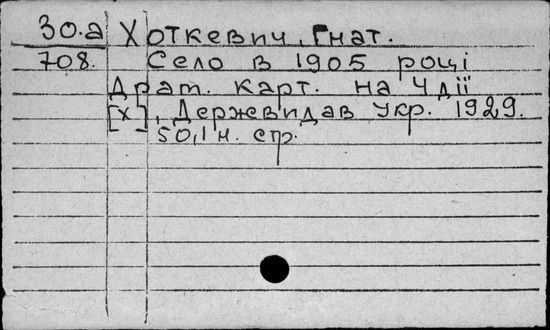 30.a Хоткевич, Гнат.
708. Село в 1905 році
Драт. карт. на 4 дії
[х], Держвидав Укр. 1929.
50,1 н. стр.